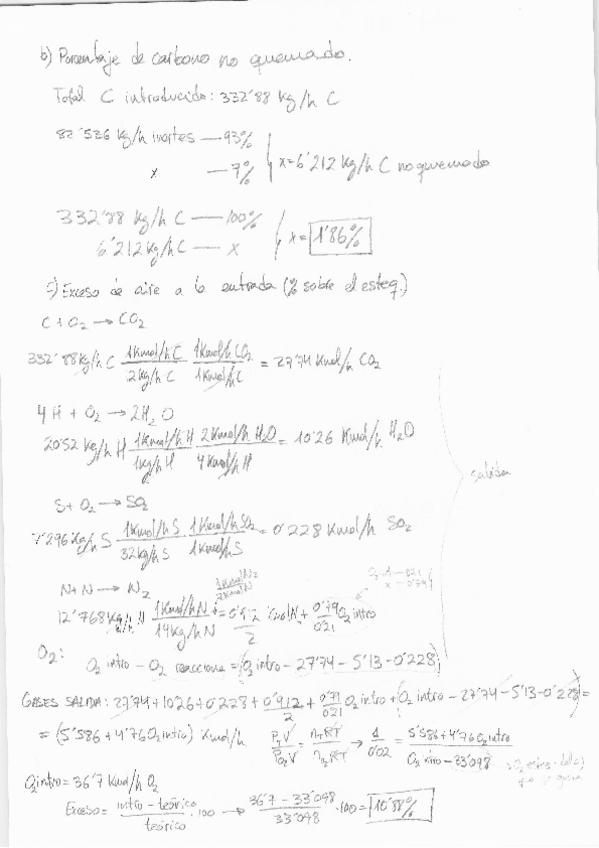 b) Porcentaje de carbono no quemado.
Total C introducido: 332'88 kg/h C
82'536 kg/h inertes — 93%
x — 7%
x=6'212 kg/h C no quemado
332'88 kg/h C — 100%
6'212 kg/h C — x
x = 1'86%
c) Exceso de aire a la entrada (% sobre el esteq.)
C + O₂ → CO₂
332'88 kg/h C · 1 Kmol/h C / 12 kg/h C · 1 Kmol/h CO₂ / 1 Kmol/h C = 27'74 Kmol/h CO₂
4H + O₂ → 2H₂O
20'52 kg/h H · 1 Kmol/h H / 1 kg/h H · 2 Kmol/h H₂O / 4 Kmol/h H = 10'26 Kmol/h H₂O
salida
S + O₂ → SO₂
7'296 Kg/h S · 1 Kmol/h S / 32 kg/h S · 1 Kmol/h SO₂ / 1 Kmol/h S = 0'228 Kmol/h SO₂
N + N → N₂
1 Kmol N₂ / 2 Kmol N
12'768 Kg/h N · 1 Kmol/h N / 14 kg/h N = 0'912 / 2 Kmol N + 0'79 / 0'21 O₂ intro
O₂:
O₂ intro - O₂ reacciona = (O₂ intro - 27'74 - 5'13 - 0'228)
GASES SALIDA: 27'74 + 10'26 + 0'228 + 0'912 / 2 + 0'79 / 0'21 O₂ intro + (O₂ intro - 27'74 - 5'13 - 0'228) =
= (5'586 + 4'76 O₂ intro) Kmol/h
→ 1 / 0'02 = 5'586 + 4'76 O₂ intro / O₂ intro - 33'098
O₂ intro = 36'7 Kmol/h O₂
Exceso = intro - teórico / teórico · 100 → 36'7 - 33'098 / 33'098 · 100 = 10'88%